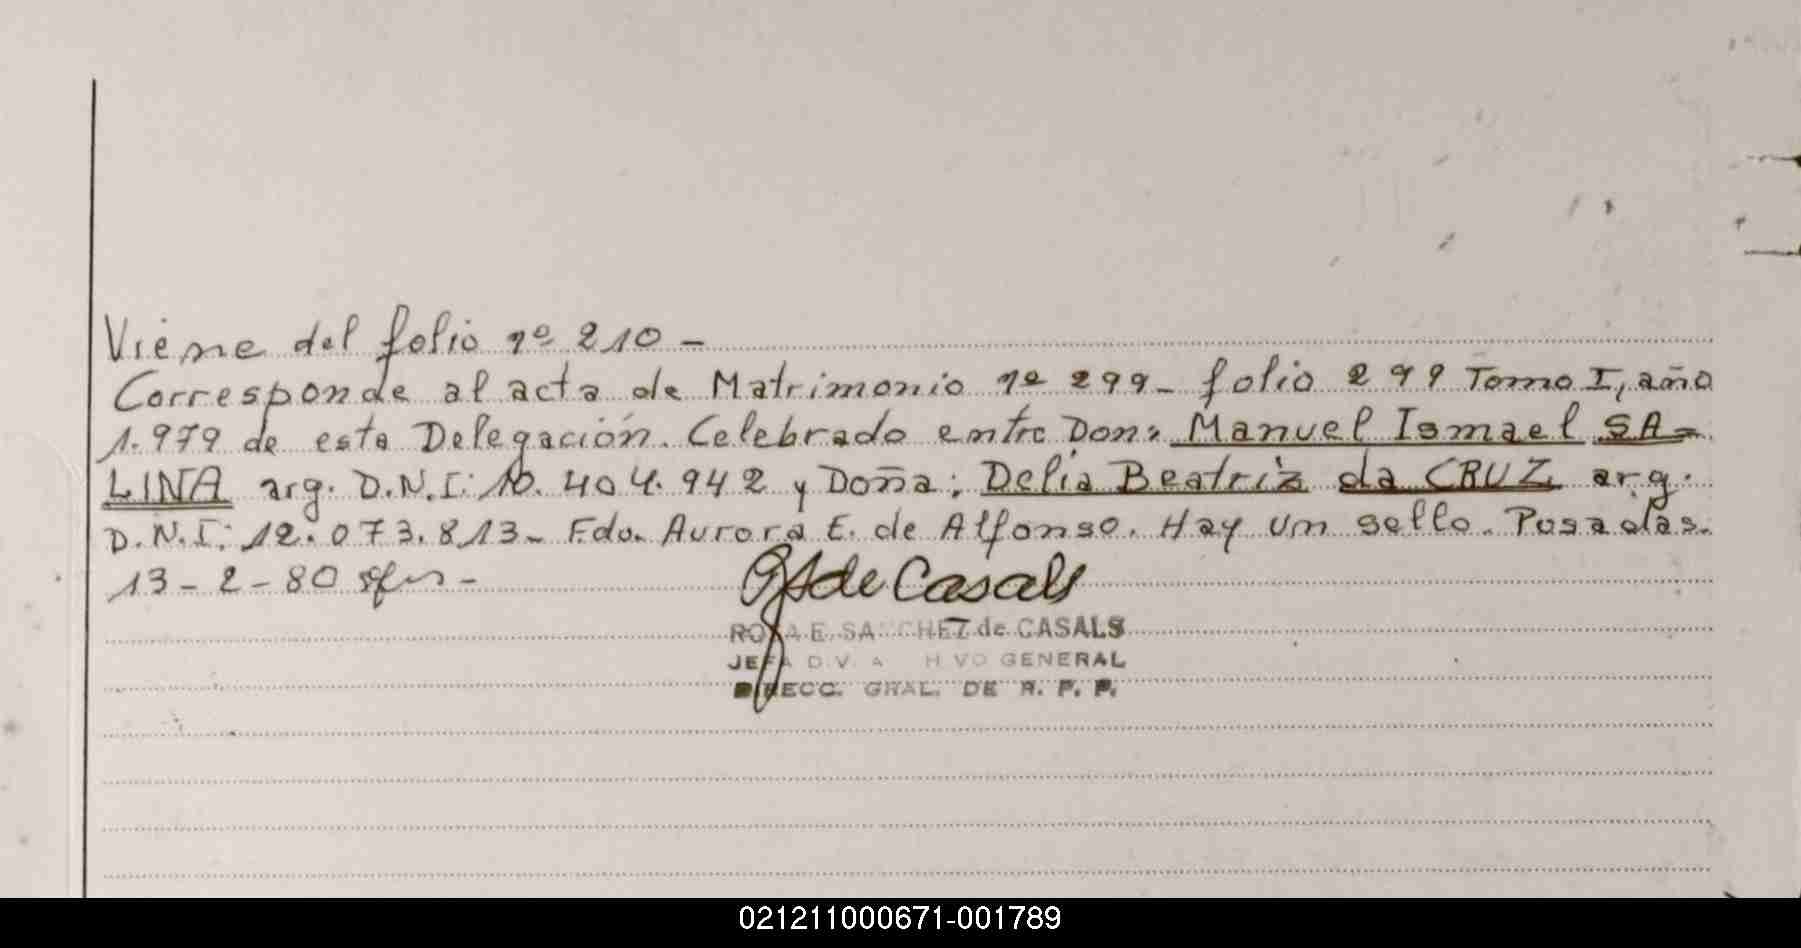 Viene del folio nº 210 -
Corresponde al acta de Matrimonio nº 299- folio 299 Tomo I, año
1.979 de esta Delegación. Celebrado entre Don: Manuel Ismael SA=
LINA arg. D.N.I: 10.404.942 y Doña: Delia Beatriz da CRUZ, arg.
D.N.I: 12.073.813- Fdo. Aurora E. de Alfonso. Hay un sello. Posadas.
13-2-80
de Casals
ROSA E. SANCHEZ de CASALS
JEFA DIV. ARCHIVO GENERAL
DIRECC. GRAL. DE R. P. P.
021211000671-001789